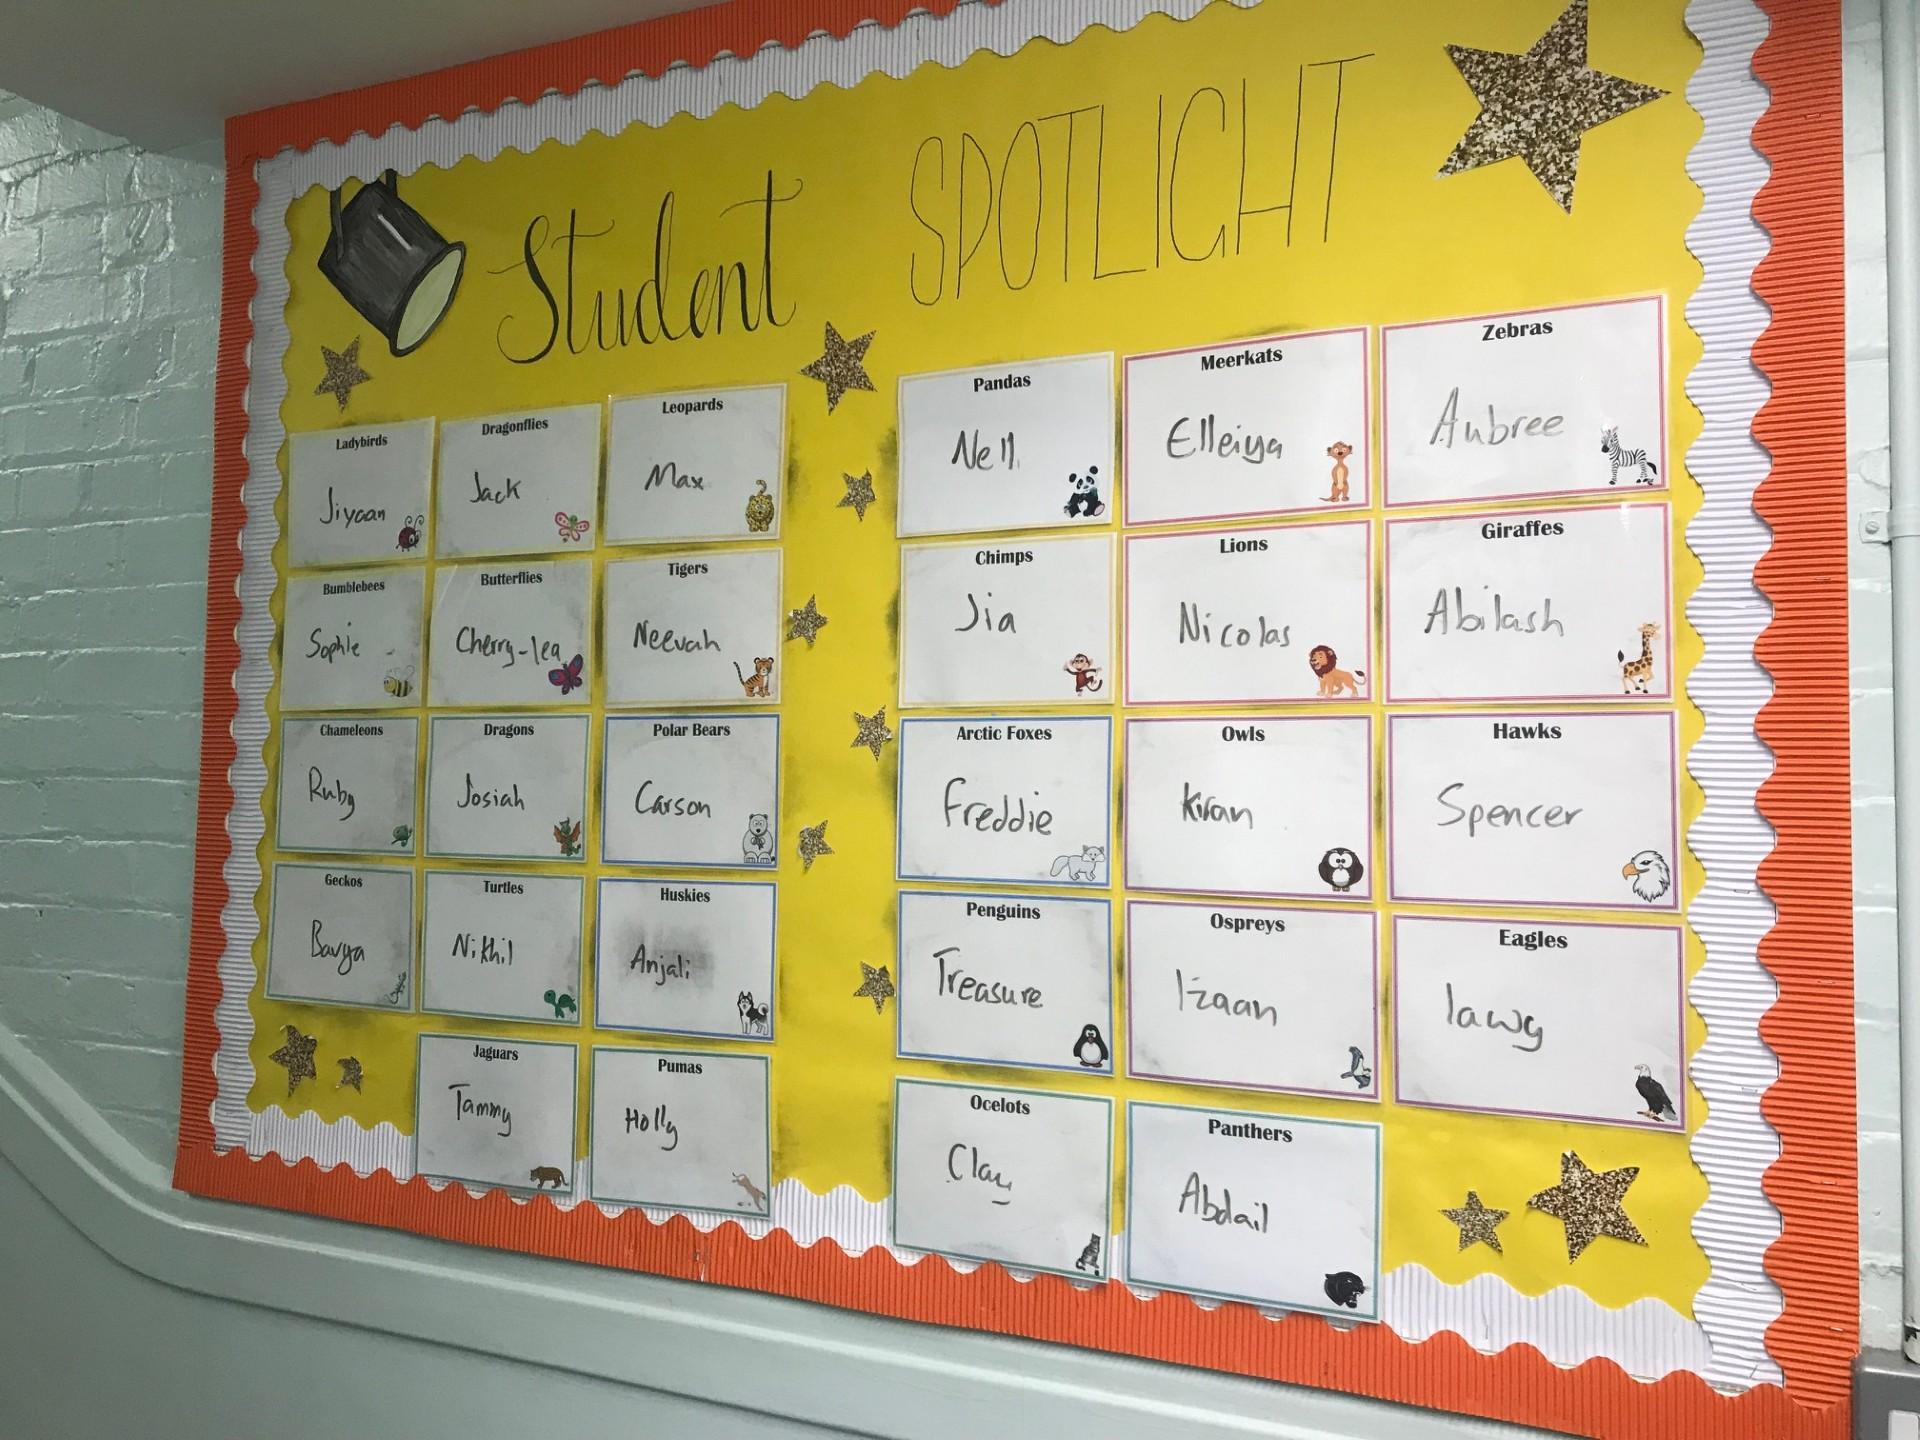 Student SPOTLIGHT
Ladybirds
Jiyaan
Dragonflies
Jack
Leopards
Max
Bumblebees
Sophie
Butterflies
Cherry-lea
Tigers
Neevah
Chameleons
Ruby
Dragons
Josiah
Polar Bears
Carson
Geckos
Bavya
Turtles
Nikhil
Huskies
Anjali
Jaguars
Tammy
Pumas
Holly
Pandas
Nell
Meerkats
Elleiya
Zebras
Aubree
Chimps
Jia
Lions
Nicolas
Giraffes
Abilash
Arctic Foxes
Freddie
Owls
Kiran
Hawks
Spencer
Penguins
Treasure
Ospreys
Izaan
Eagles
Iawy
Ocelots
Clay
Panthers
Abdail